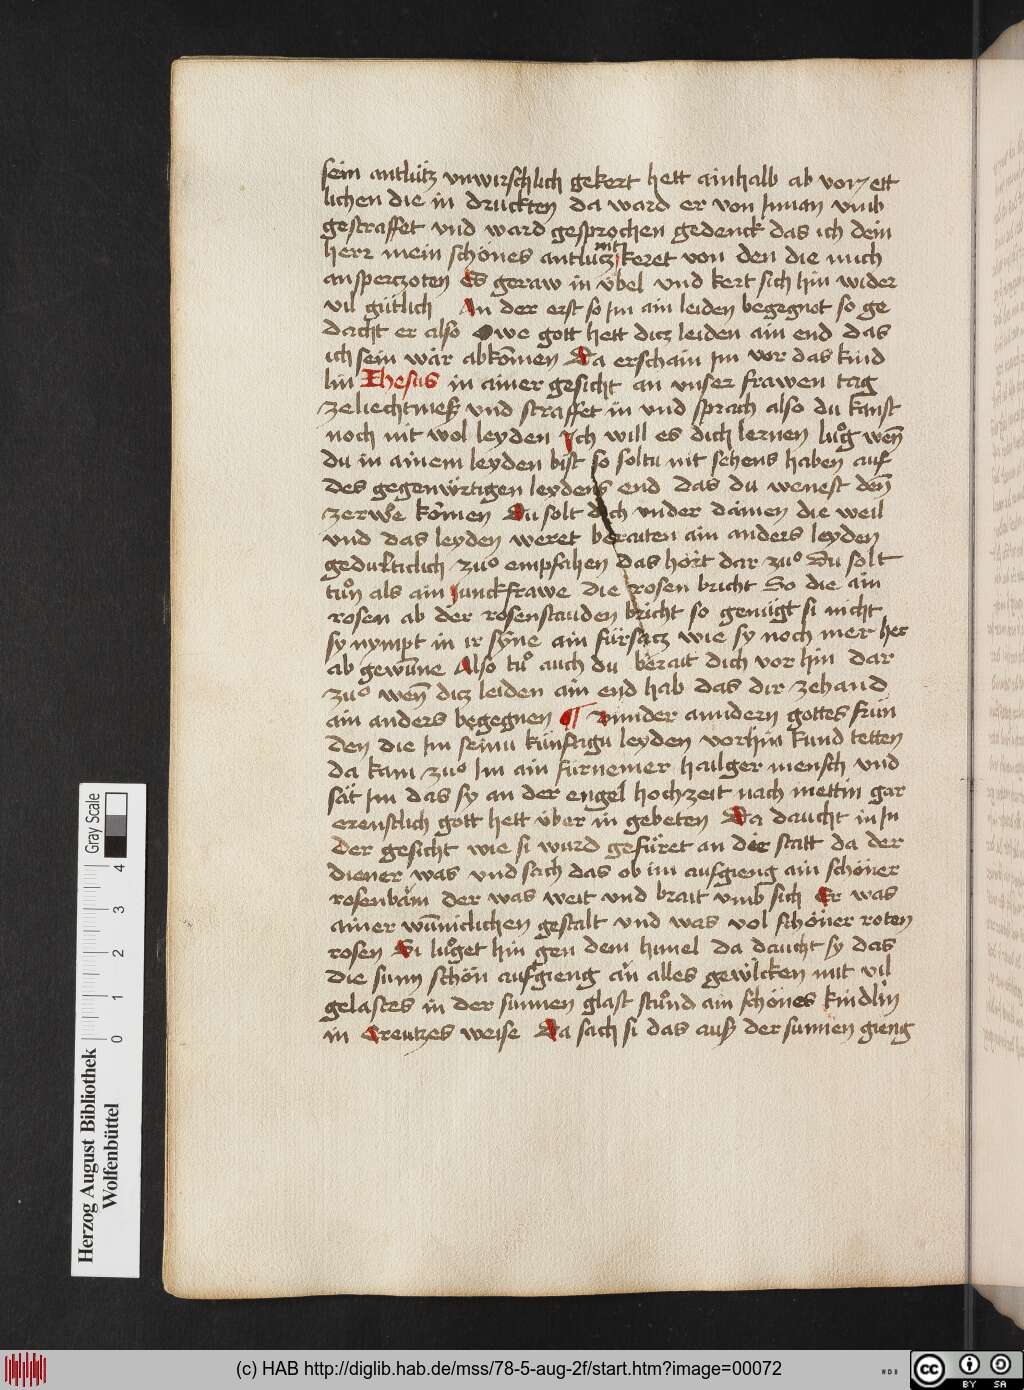 sein antlütz vnwirschlich gekert hett ainhalb ab vor ett
lichen die in druckten da ward er von Jnnan vmb
gestraffet vnd ward gesprochen gedenck das ich dein
herr mein schönes antlütz nit keret von den die mich
anspertzoten Es geraw in übel vnd kert sich hin wider
vil gütlich An der erst so Jm ain leiden begegnot so ge
dacht er also Owe gott hett ditz leiden ain end das
ich sein wär abkōmen Da erschain Jm vor das kind
lin Jhesus in ainer gesicht an vnser frawen tag
ze liechtmeß vnd straffet in vnd sprach also du kanst
noch nit wol leyden Jch will es dich lernen luͦg weñ
du in ainem leyden bist so soltu nit sehens haben auf
des gegenwürtigen leydens end das du wenest deñ
ze rwͦe kōmen Du solt dich vnder dannen die weil
vnd das leyden weret beraiten ain anders leyden
gedulticlich zuͦ empfahen das hört dar zuͦ Du solt
tuͦn als ain junckfrawe die rosen bricht So die ain
rosen ab der rosenstauden bricht so genügt si nicht
sy nympt in ir sÿne ain fürsatz wie sy noch mer her
ab gewūne Also tuͦ auch du berait dich vor hin dar
zuͦ weñ ditz leiden ain end hab das dir zehand
ain anders begegnen ¶ Vnnder anndern gottes frün
den die Jm seinu künftigu leyden vorhin kund tetten
da kam zuͦ Jm ain fürnemer hailger mensch vnd
sät Jm das sy an der engel hochzeit nach mettin gar
erenstlich gott hett über in gebeten Da daucht in Jn
der gesicht wie si wurd gefüret an die statt da der
diener was vnd sach das ob im aufgieng ain schöner
rosenbäm der was weit vnd brait vmb sich Er was
ainer wūniclichen gestalt vnd was vol schöner roten
rosen Si luͦget hin gen dem himel da daucht sy das
die sunn schön aufgieng an alles gewülcken mit vil
gelastes in der sunnen glast stuͦnd ain schönes kindlin
in Creutzes weise Da sach si das auß der sunnen gieng
Gray Scale
0 1 2 3 4
Herzog August Bibliothek
Wolfenbüttel
(c) HAB http://diglib.hab.de/mss/78-5-aug-2f/start.htm?image=00072
WDB
cc BY SA